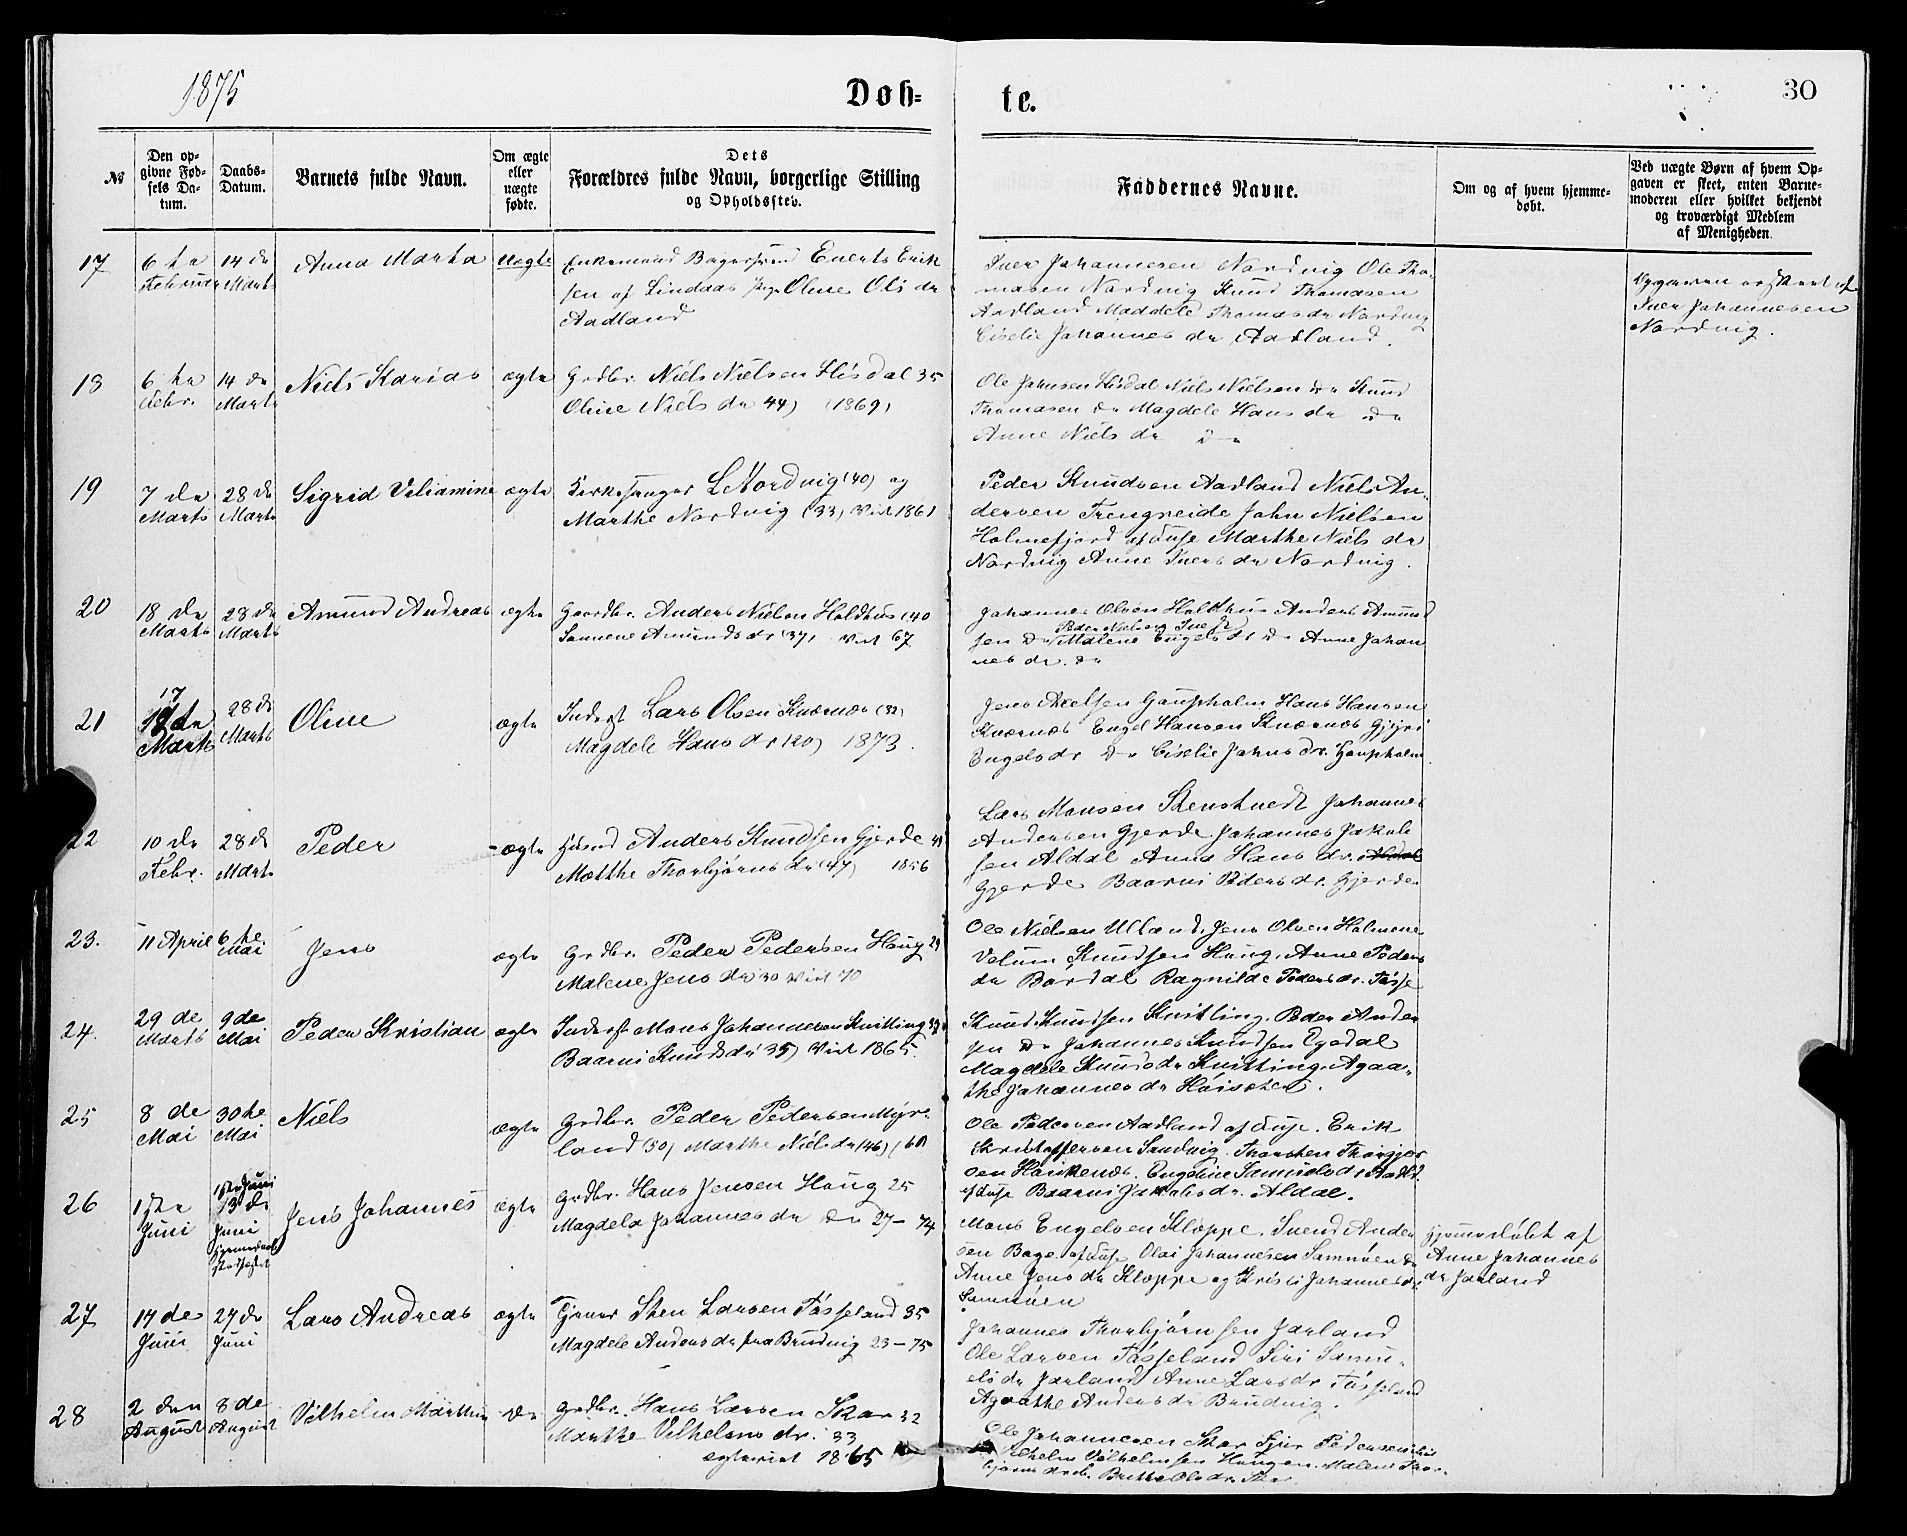 1875
Døb-
te.
30
№
Den op-
givne Fød-
sels Da-
tum.
Daabs-
Datum.
Barnets fulde Navn.
Om ægte
eller
uægte
fødte.
Dets
Forældres fulde Navn, borgerlige Stilling
og Opholdssted.
Faddernes Navne.
Om og af hvem hjemme-
døbt.
Ved uægte Børn af hvem Op-
gaven er skeet, enten Barne-
moderen eller hvilket bekjendt
og troværdigt Medlem
af Menigheden.
17
6te
Februar
14 de
Marts
Anna Marta
uægte
Enkemand Evert Erik
sen af Lindaas Oline Ols dr
Aadland
Iver Johannesen Nordvig Ole Tho-
masen Nordvig Knud Thomasen
Aadland Maddele Thomas dr Nordvig
Ciselie Johannes dr Aadland.
Opgaven af
Iver Johannesen
Nordvig.
18
6 te
Febr.
14 de
Marts
Niels Karias
ægte
Grdbr. Niels Nielsen Hisdal 35
Oline Niels dr 44) (1869)
Ole Johnsen Hisdal Niels Nielsen Do Knud
Thomasen Do Magdele Hans dr Do
Anne Niels dr Do
19
7 de
Marts
28 de
Marts
Sigrid Viliamine
ægte
Kirkesanger L Nordvig (40) og
Marthe Nordvig (33) Viet 1861
Peder Knudsen Aadland Niels An-
dersen Trengreide John Nielsen
Holmefjord af Fuse Marthe Niels dr
Nordvig Anne Ivers dr Nordvig.
20
18 de
Marts
28 de
Marts
Amund Andreas
ægte
Gaardbr. Anders Nielsen Holdhus (40
Amunds dr (37) Viet 67
Johannes Olsen Holdhus Anders Amund
sen Do Malene Engels dr Do Anne Johan
nes dr. Do
21
17
18 de
Marts
28 de
Marts
Oline
ægte
Inderst Lars Olsen Kværnes (32)
Magdele Hans dr (20) 1873.
Jens Axelsen Gaupholm Hans Hansen
Kværnes Engel Hansen Kværnes Gjyri
Engels dr Do Ciselie Johns dr. Gaupholm
22
10 de
Febr.
28 de
Marts
Peder
ægte
Husmd Anders Knudsen Gjerde 41
Matthe Thorbjørns dr (47) 1856
Lars Monsen Johannes
Andersen Gjerde Johannes Jakob
sen Aldal Anna Hans dr.
Gjerde Baarni Peders dr. Gjerde
23.
11 April
6 te
Mai
Jens
ægte
Grdbr. Peder Pedersen Haug 29
Malene Jens dr 30 Viet 70
Ole Nielsen Ulland, Jens Olsen Holmene
Velum Knudsen Haug, Anne Peders
dr Bordal Ragnilde Peders dr.
24.
29 de
Marts
9 de
Mai
Peder Kristian
ægte
Inderst Mons Johannesen Kvitling 39
Baarni Knuds dr 35) Viet 1865.
Knud Knudsen Kvitling. Peder Ander
sen Do Johannes Knudsen Egedal
Magdele Knuds dr Kvitting. Agaa-
the Johannes dr
25
8 de
Mai
30 te
Mai
Niels
ægte
Grdbr. Peder Pedersen Myre-
land (50) Marthe Niels dr (46)
Ole Pedersen Aadland af Fuse. Erik
Kristoffersen Sundvig. Thorsten
af Fuse Baarni Jakobs dr. Aldal.
26
1ste
Juni
13 de
Juni
Jens Johannes
ægte
Grdbr. Hans Jensen Haug 25
Magdela Johannes dr Do 27 – 74
Mons Engelsen Kloppe. Svend Ander
sen Bage af Fuse Olai Johannesen Samnøen Do
Anne Jens dr Kloppe og Kristi Johannes dr
Samnøen
hjemmedøbt af
Anne Johannes
dr Jarland
27
14 de
Juni
27 de
Juni
Lars Andreas
ægte
Tjener Sten Larsen Tøsseland 35
Magdele Anders dr fra Brudvig 23 – 75
Johannes Thorbjørnsen Jarland
Ole Larsen Tøsseland Siri Samu-
els dr Jarland Anne Lars dr. Tøsseland
Agaathe Anders dr Brudvig.
28
2 den
August
8 de
August
Vilhelm Marthin
Do
Grdbr. Hans Larsen Skar 32
Marthe Vilhelms dr. 33
egteviet 1865
Ole Johannesen Skar Sjur Pedersen
Vilhelm Vilhelmsen Haugen. Malene Thor-
bjørns dr Britha Ols dr. Skar